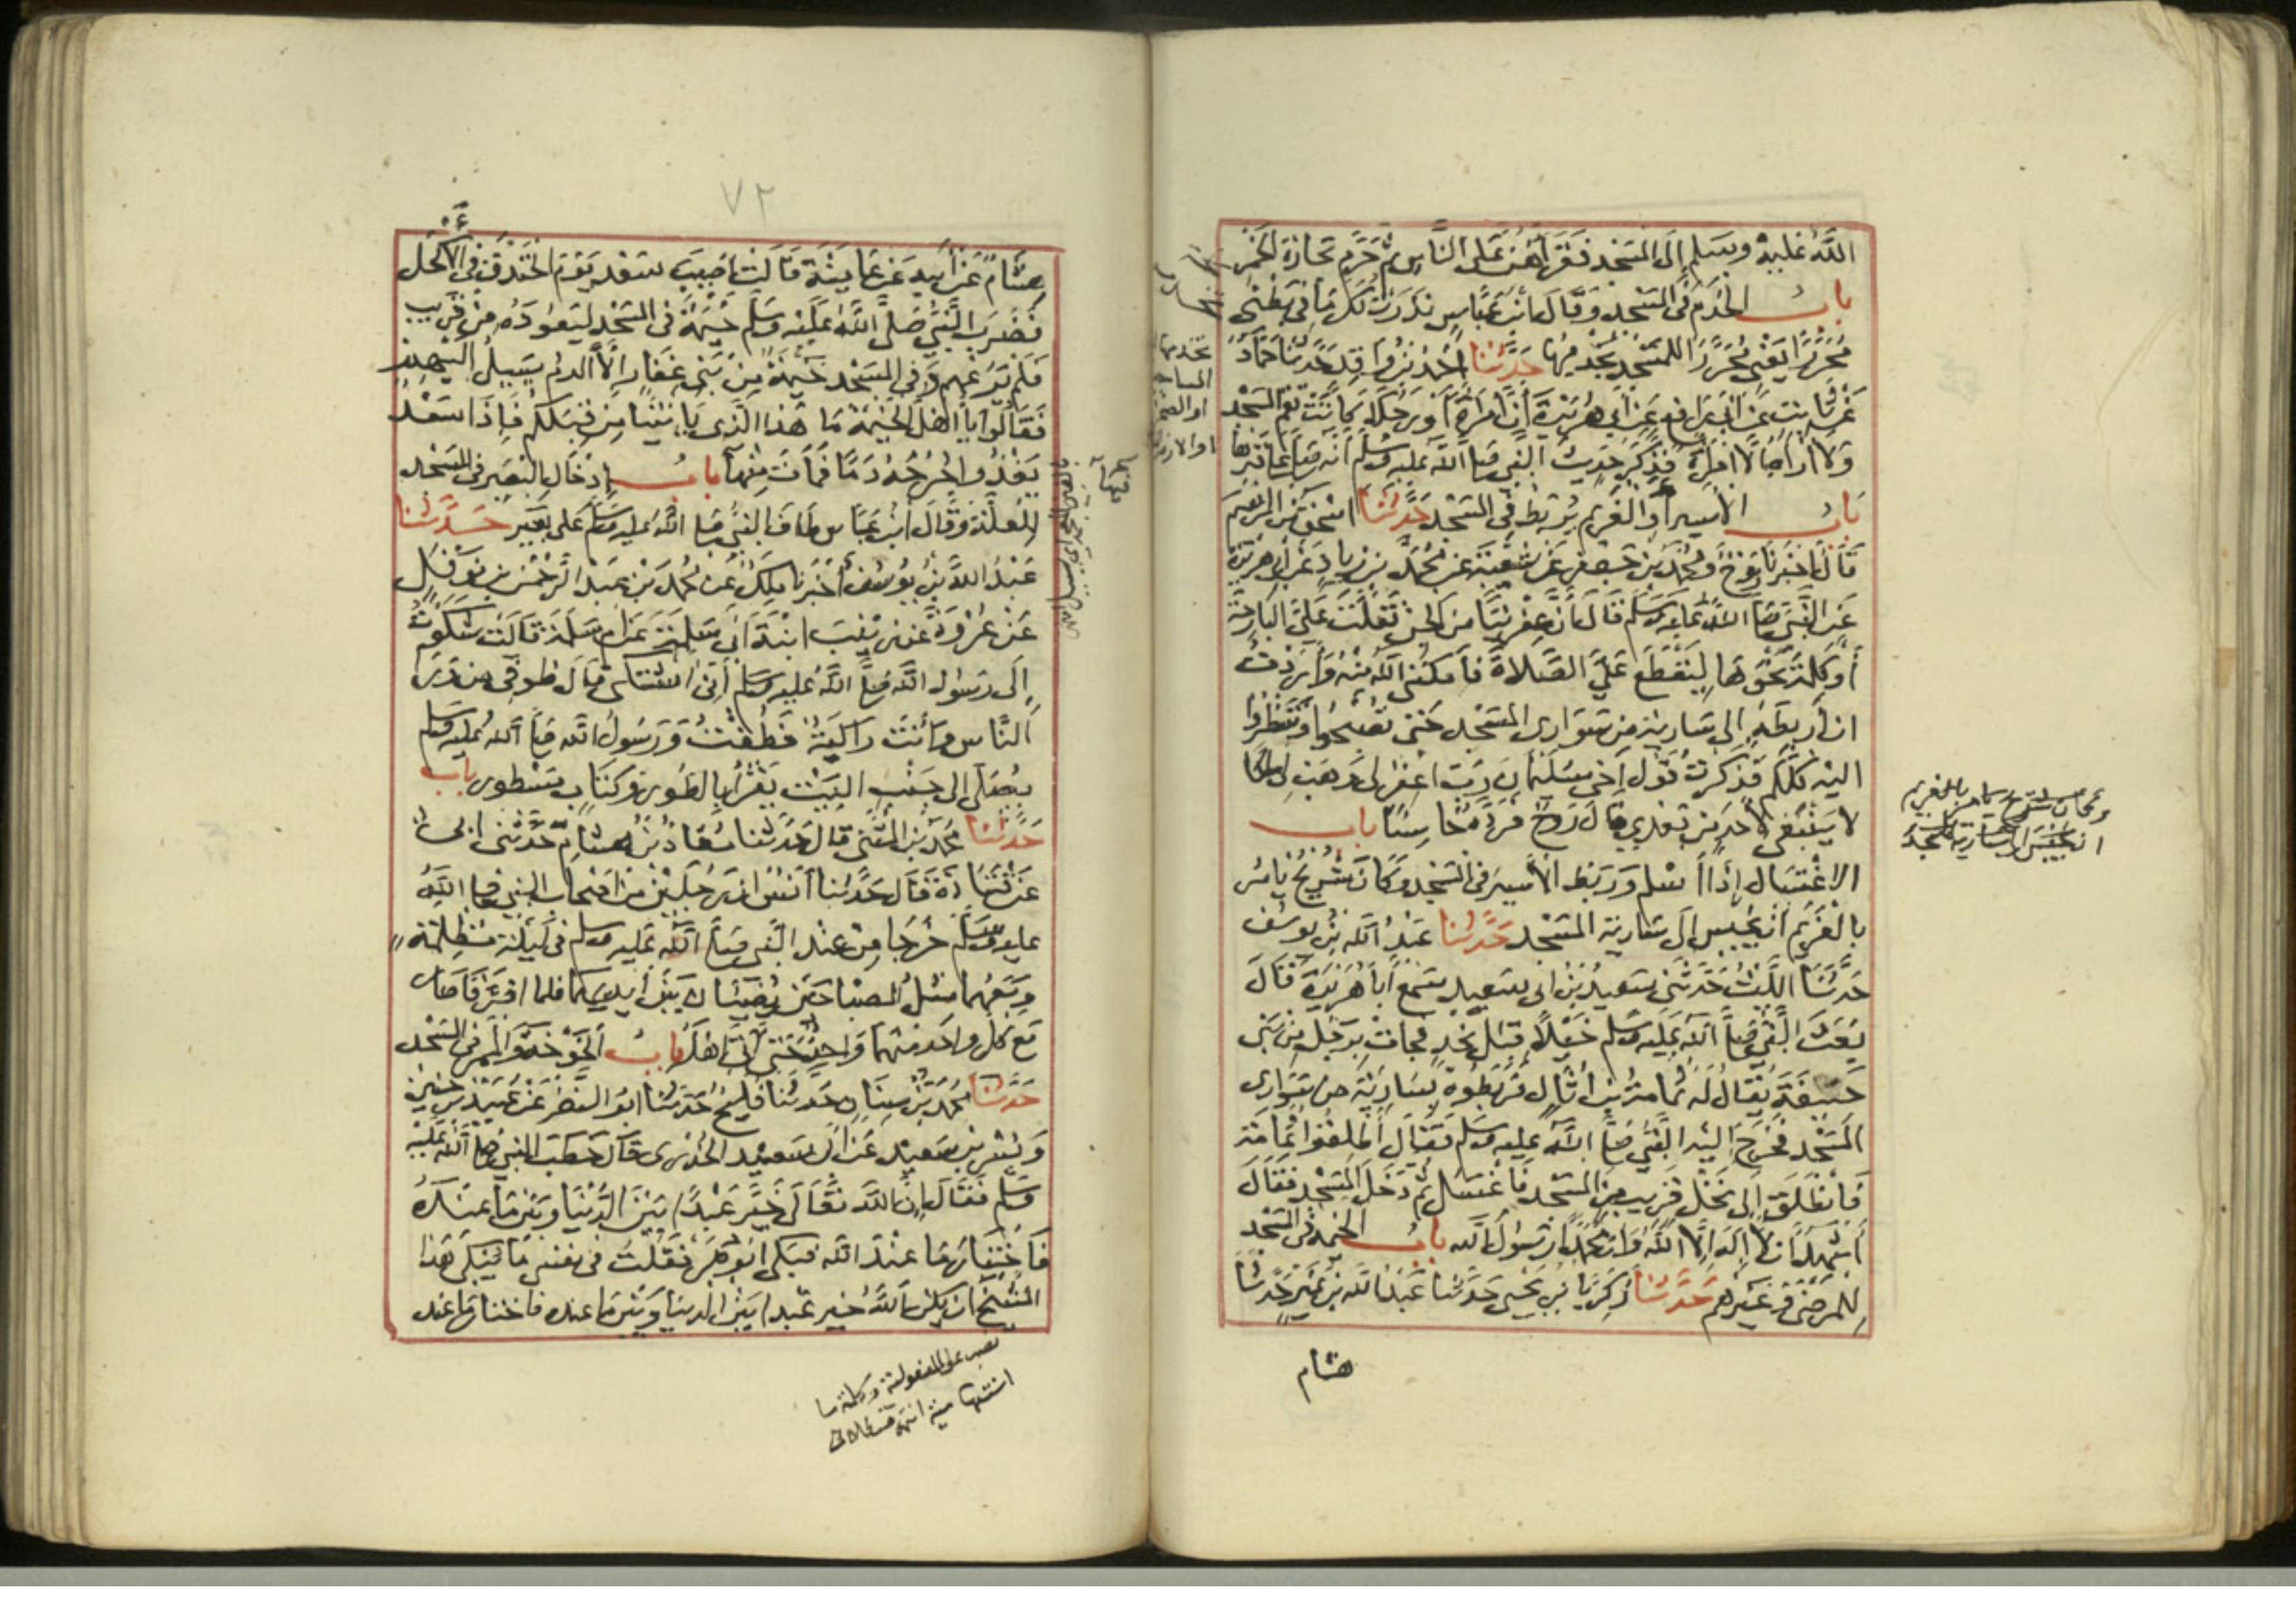 الله عليه وسلم إلى المسجد فقرأهن على الناس ثم حرم تجارة الخمر
باب الخدم في المسجد وقال ابن عباس نذرت لك ما في بطني
محررا يعني محررا للمسجد يخدمها حدثنا احمد بن واقد حدثنا حماد
عن ثابت عن ابي رافع عن ابي هريرة أن امرأة أو رجلا كانت تقم المسجد
ولا أراه الا امرأة فذكر حديث النبي صلى الله عليه وسلم أنه صلى على قبرها
باب الأسير أو الغريم يربط في المسجد حدثنا اسحق بن ابرهيم
قال اخبرنا روح ومحمد بن جعفر عن شعبة عن محمد بن زياد عن ابي هريرة
عن النبي صلى الله عليه وسلم قال ان عفريتا من الجن تفلت علي البارحة
أو كلمة نحوها ليقطع علي الصلاة فأمكنني الله منه وأردت
ان أربطه إلى سارية من سواري المسجد حتى تصبحوا وتنظروا
اليه كلكم فذكرت قول أخي سليمان رب اغفر لي وهب لي ملكا
لا ينبغي لأحد من بعدي قال روح فرده خاسئا باب
الاغتسال إذا أسلم وربط الأسير في المسجد وكان شريح يأمر
بالغريم أن يحبس الى سارية المسجد حدثنا عبد الله بن يوسف
حدثنا الليث حدثني سعيد بن ابي سعيد سمع أبا هريرة قال
بعث النبي صلى الله عليه وسلم خيلا قبل نجد فجاءت برجل من بني
حنيفة يقال له ثمامة بن أثال فربطوه بسارية من سواري
المسجد فخرج اليه النبي صلى الله عليه وسلم فقال أطلقوا ثمامة
فانطلق إلى نخل قريب من المسجد فاغتسل ثم دخل المسجد فقال
أشهد ان لا إله إلا الله وان محمدا رسول الله باب الخيمة في المسجد
للمرضى وغيرهم حدثنا زكريا بن يحيى حدثنا عبد الله بن نمير حدثنا
هشام
وكان شريح يأمر بالغريم
ان يحبس الى سارية المسجد
٧٢
هشام عن أبيه عن عايشة قالت اصيب سعد يوم الخندق في الأكحل
فضرب النبي صلى الله عليه وسلم خيمة في المسجد ليعوده من قريب
فلم يرعهم وفي المسجد خيمة من بني غفار إلا الدم يسيل اليهم
فقالوا يا أهل الخيمة ما هذا الذي يأتينا من قبلكم فإذا سعد
يغذوا جرحه دما فمات منها باب إدخال البعير في المسجد
للعلة وقال ابن عباس طاف النبي صلى الله عليه وسلم على بعير حدثنا
عبد الله بن يوسف أخبرنا ملك عن محمد بن عبد الرحمن بن نوفل
عن عروة عن زينب ابنة ابي سلمة عن ام سلمة قالت شكوت
إلى رسول الله صلى الله عليه وسلم أني اشتكي قال طوفي من ورا
الناس وأنت راكبة فطفت ورسول الله صلى الله عليه وسلم
يصلي إلى جنب البيت يقرأ بالطور وكتاب مسطور باب
حدثنا محمد بن المثنى قال حدثنا معاذ بن هشام حدثني ابي
عن قتادة قال حدثنا أنس ان رجلين من اصحاب النبي صلى الله
عليه وسلم خرجا من عند النبي صلى الله عليه وسلم في ليلة مظلمة
ومعهما مثل المصباحين يضيئان بين أيديهما فلما افترقا صار
مع كل واحد منهما واحد حتى أتى أهله باب الخوخة والممر في المسجد
حدثنا محمد بن سنان حدثنا فليح حدثنا ابو النضر عن عبيد بن حنين
وبسر بن سعيد عن ابي سعيد الخدري قال خطب النبي صلى الله عليه
وسلم فقال إن الله تعالى خير عبدا بين الدنيا وبين ما عنده
فاختار ما عند الله فبكى ابو بكر فقلت في نفسي ما يبكي هذا
الشيخ ان يكن الله خير عبدا بين الدنيا وبين ما عنده فاختار ما عند
نصب على المفعولية وكلمة ما
استفهامية انتهى قسطلاني